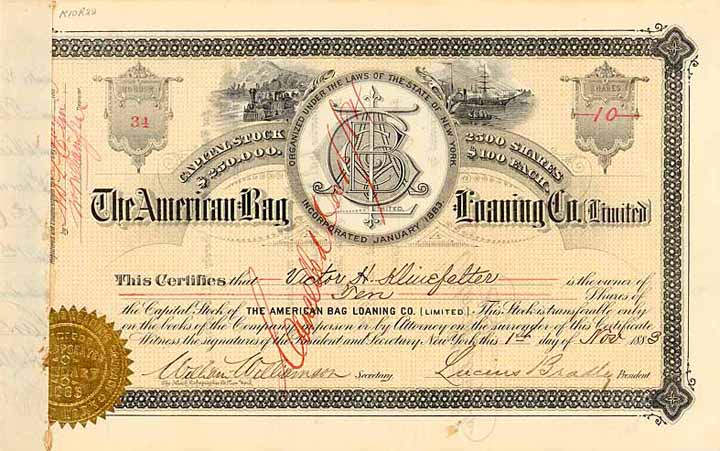 K10R22
NUMBER
34
SHARES
10
ORGANIZED UNDER THE LAWS OF THE STATE OF NEW YORK
INCORPORATED JANUARY 1883.
LIMITED.
CAPITAL STOCK
$250.000.
2500 SHARES
$100 EACH.
The American Bag Loaning Co. (Limited)
This Certifies that Victor H. Klinefelter is the owner of
Ten Shares of
the Capital Stock of THE AMERICAN BAG LOANING CO. (LIMITED.) This Stock is transferable only
on the books of the Company in person or by Attorney on the surrender of this Certificate
Witness the signatures of the President and Secretary New York this 1st day of Nov 1883
William Williamson Secretary. Lucius Bradley President
Cancelled